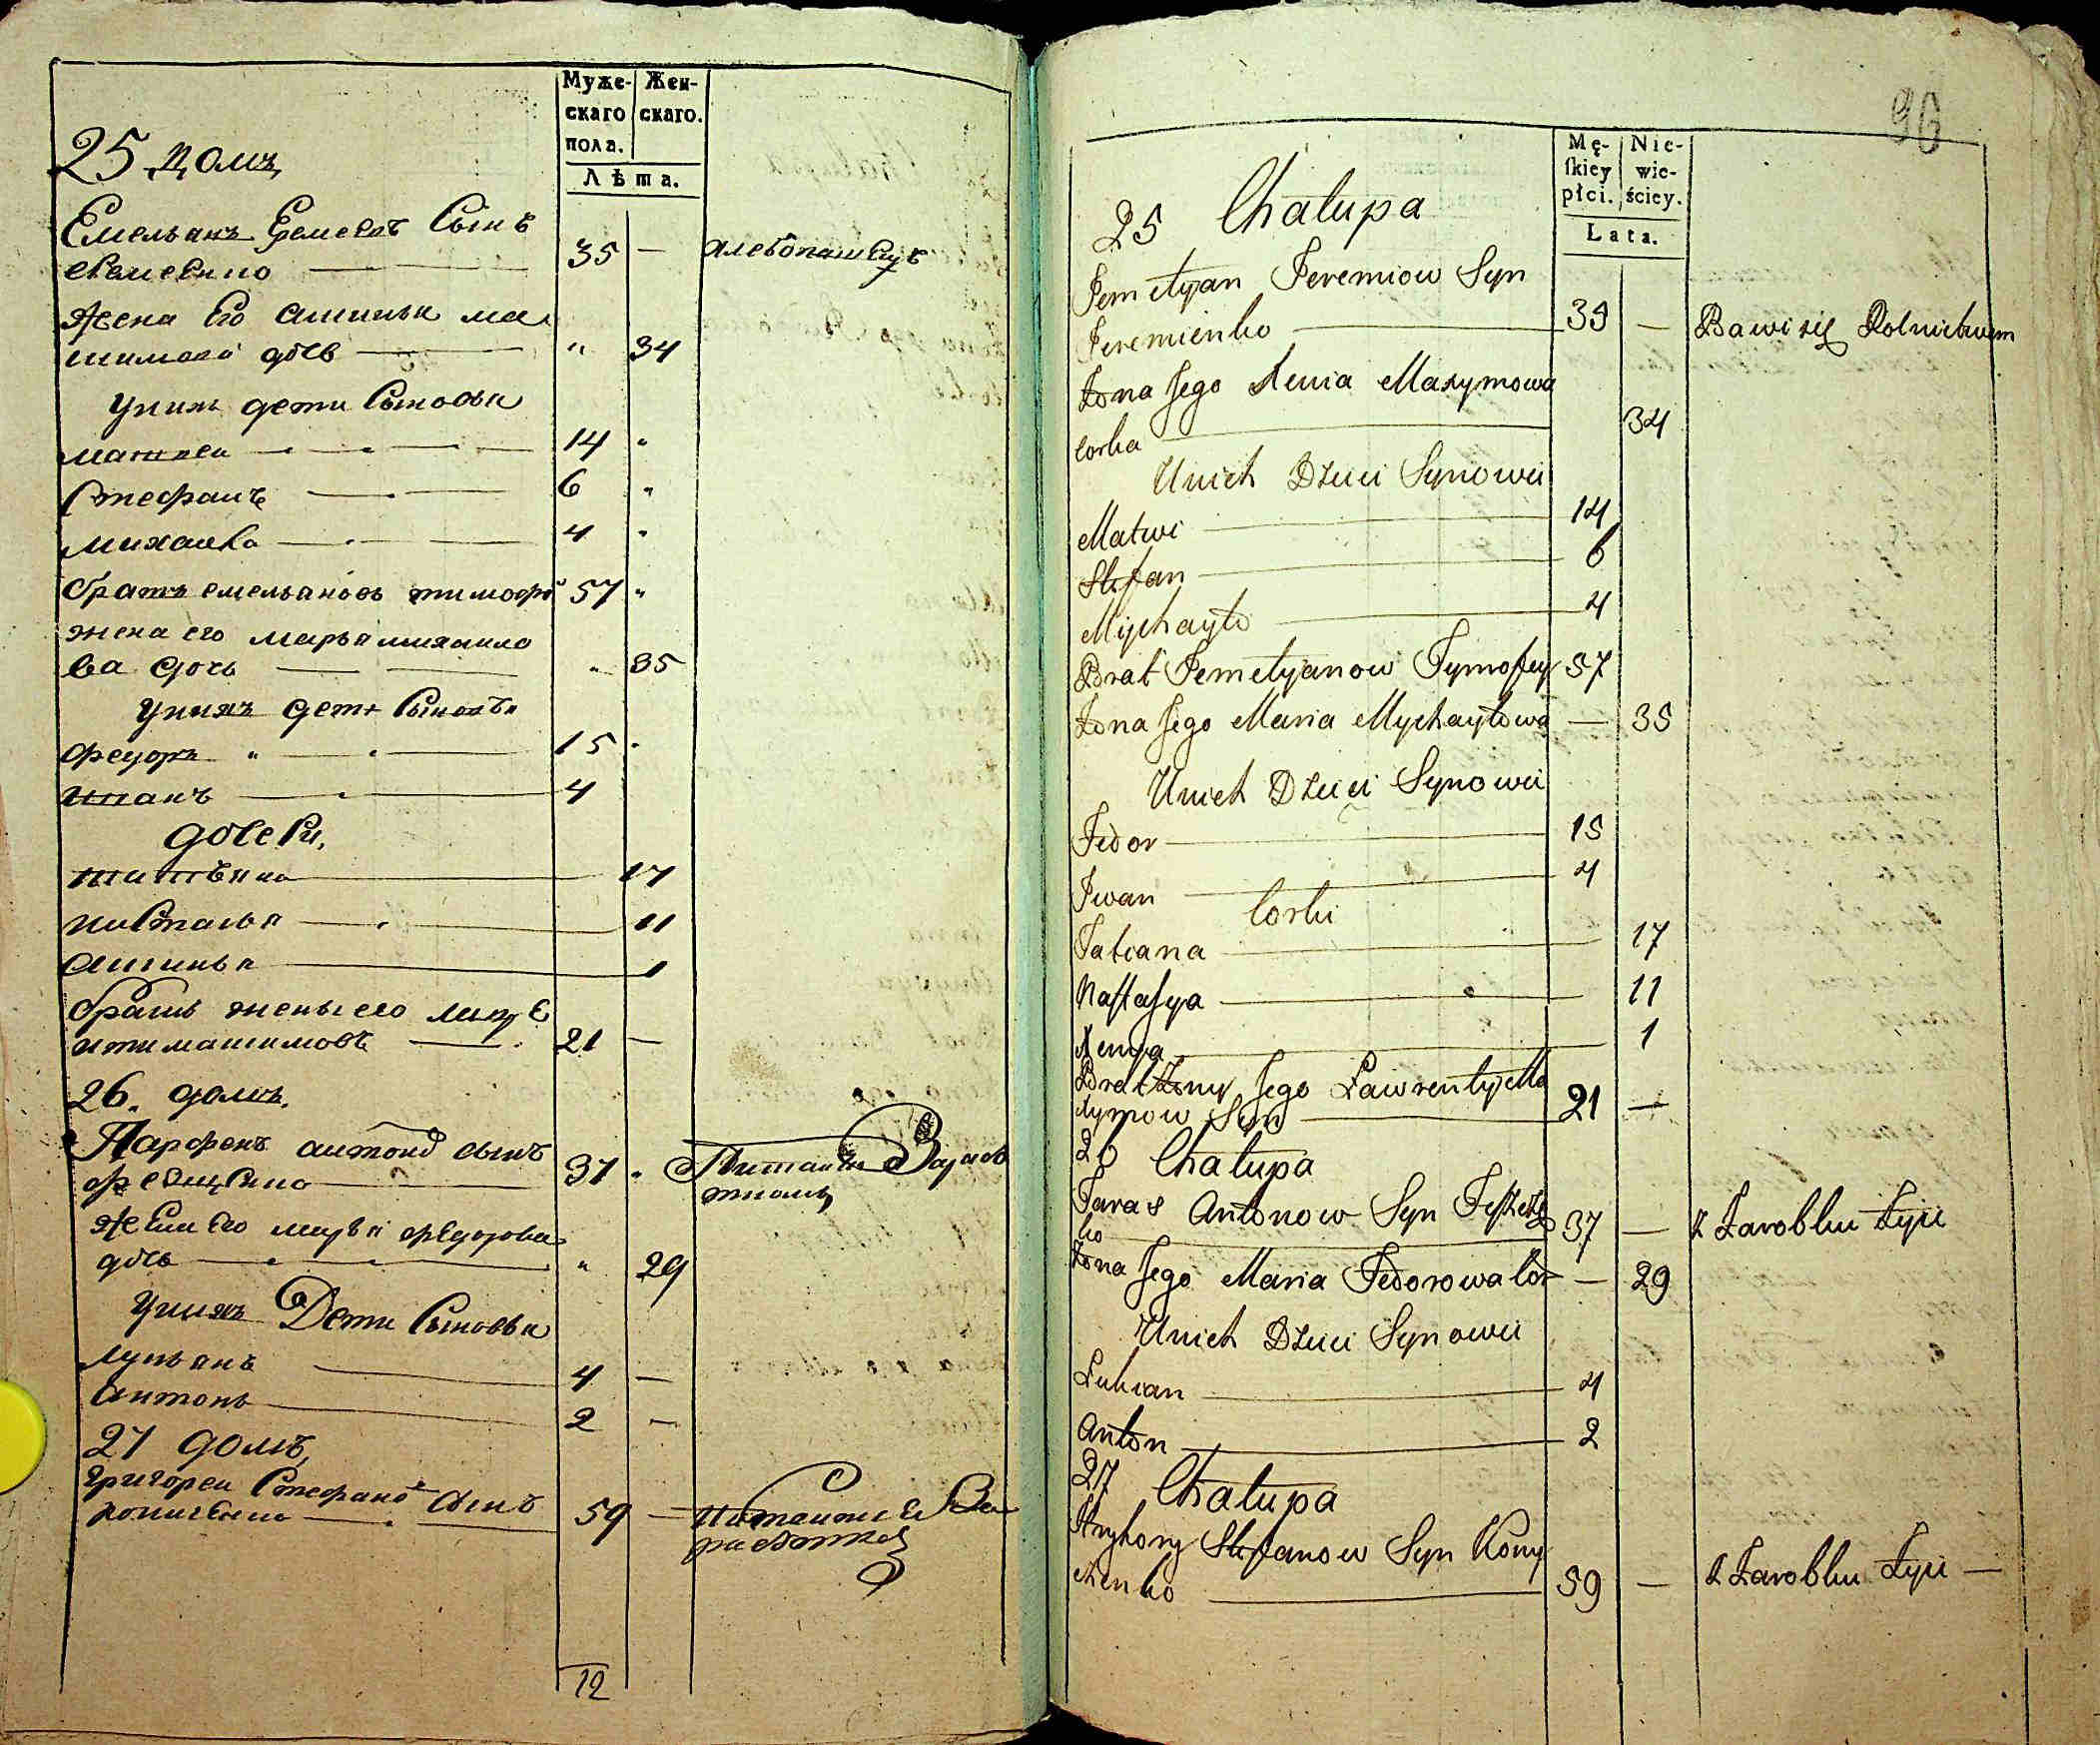 Муже-
скаго
пола.
Жен-
скаго.
Лѣта.
25 домъ
Емельянъ Еремеевъ Сынъ
35 —
жена Его
34
Унихъ дети Сыновья
матвеи
14
Стефанъ
6
михаило
4
братъ емельяновъ тимофей
57
жена его марья михаило
ва дочь
35
Унихъ дети Сыновья
Федоръ
15
Иванъ
4
дочери,
татьяна
17
настасья
11
1
братъ жены его
21 —
26. домъ.
Парфенъ антоновъ сынъ
37
жена Его марья федорова
дочь
29
Унихъ Дети Сыновья
Лукьянъ
4 —
Антонъ
2 —
27 домъ,
григореи Стефановъ Сынъ
59 —
12
90
Mę-
ſkiey
płci.
Nie-
wie-
ściey.
Lata.
25 Chałupa
Jemelyan Jeremiow Syn
Jeremienko
35 — Bawi się Rolnictwem
Żona Jego Xenia Maxymowa
corka
34
Unich Dzieci Synowie
Matwi
14
Stefan
6
Mychayło
4
Brat Jemelyanow Tymofey 57
Żona Jego Maria Mychayłowa — 35
Unich Dzieci Synowie
Fedor
15
Iwan
4
Corki
Tatiana
17
Naſtaſya
11
Xenya
1
Brat Żony Jego Ławrenty Ma
xymow Syn
21 —
26 Chałupa
Taras Antonow Syn
ko
37 — z Zarobku Żyie
Żona Jego Maria Fedorowa Cor — 29
Unich Dzieci Synowie
Łukian
4
Anton
2
27 Chałupa
Hryhory Stefanow Syn Kony
chenko
59 — z Zarobku Żyie —